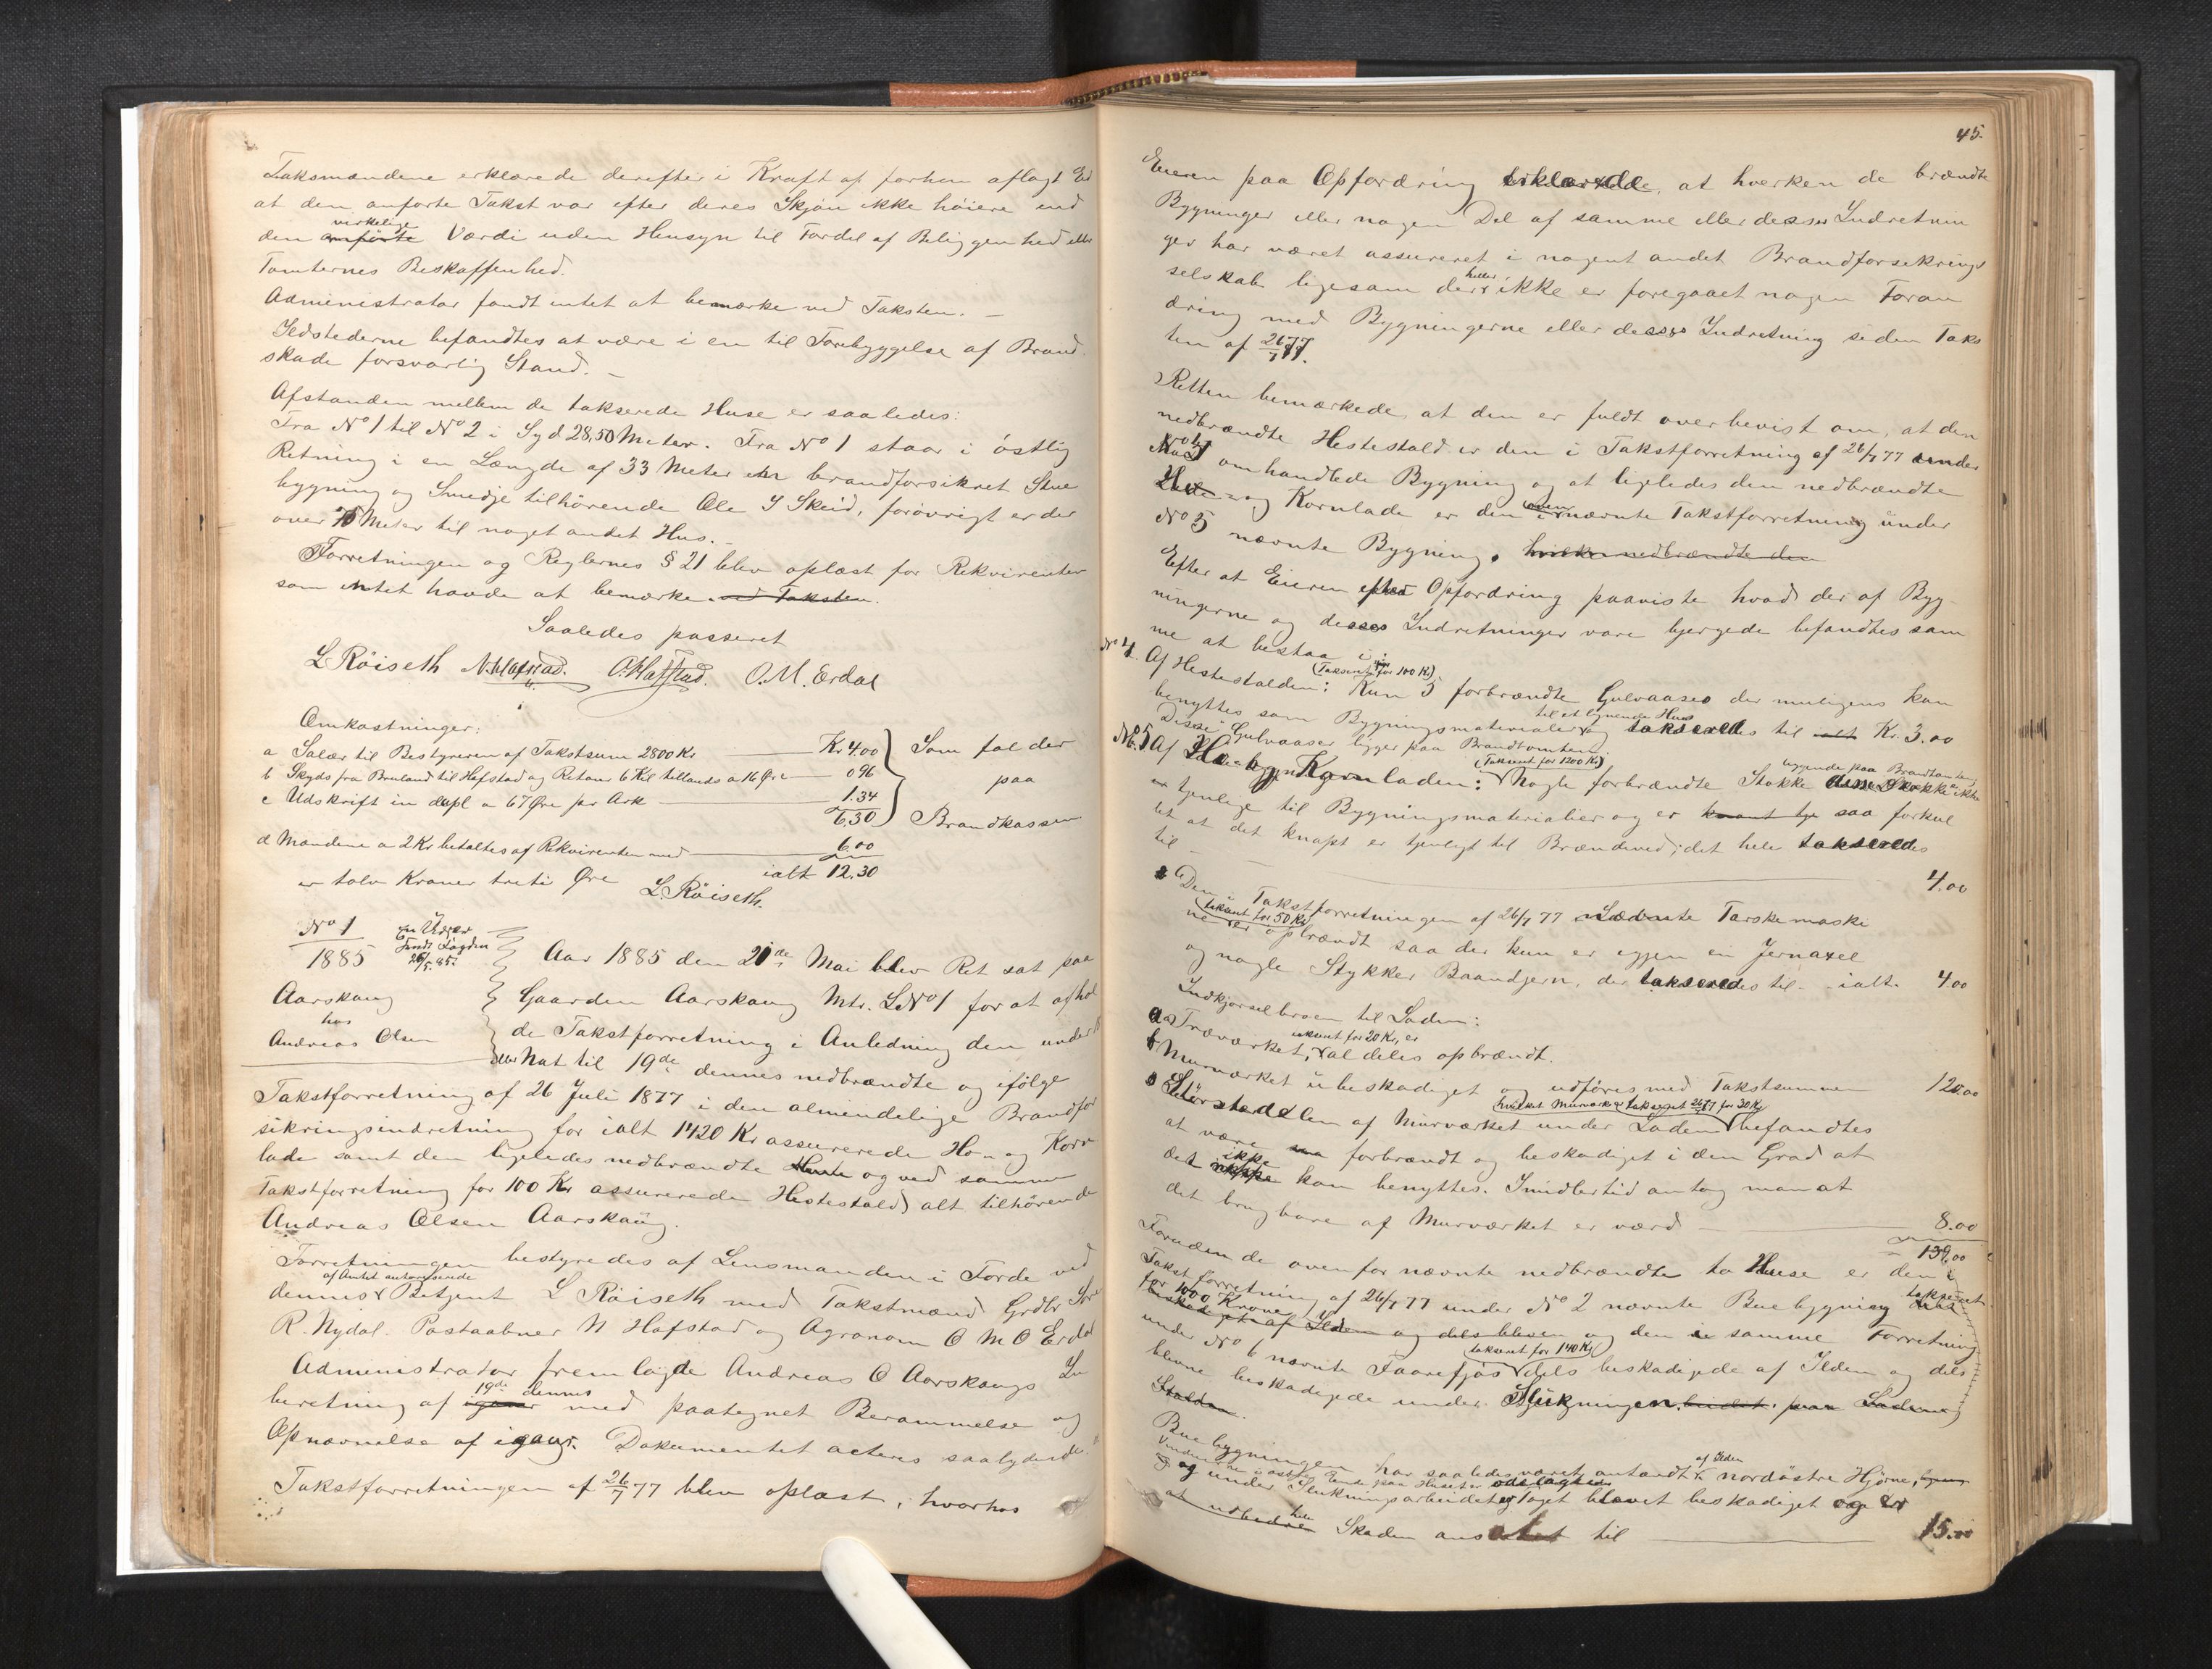 Taksmændene erklærede derefter i Kraft af forhen aflagt Ed
at den anførte Takst var efter deres Skjøn ikke høiere end
virkelige
den anførte Værdi uden Hensyn til Fordel af Beliggenhed eller
Tomternes Beskaffenhed.
Administrator fandt intet at bemærke ved Taksten. –
Ildstederne befandtes at være i en til Forebyggelse af Brand-
skade forsvarlig Stand. –
Afstanden mellem de takserede Huse er saaledes:
Fra No 1 til No 2 i Syd 28,50 Meter. Fra No 1 staar i østlig
Retning i en Længde af 33 Meter en brandforsikret Stue
bygning og Smedje tilhørende Ole J Skeid, forøvrigt er der
over 75 Meter til noget andet Hus. –
Forretningen og Reglernes § 21 blev oplæst for Rekvirenten
som intet havde at bemærke ved Taksten.
Saaledes passeret
L Röiseth N. Hafstad. O. Hafstad. O. M. Erdal
Omkostninger:
a Salær til Bestyreren af Takstsum 2800 Kr — Kr 4 00
b Skyds fra Bruland til Hafstad og Retour 6 Kil tillands a 16 Øre — 0 96
c Udskrift in dupl a 67 Øre pr Ark — 1.34
6,30
Som falder
paa
Brandkassen
d Mændene a 2 Kr betaltes af Rekvirenten med — 6.00
ialt 12.30
er tolv Kroner treti Øre L. Röiseth.
No 1
1885
Aarskaug
hos
Andreas Olsen
Aar 1885 den 21de Mai blev Ret sat paa
Gaarden Aarskaug Mtr. LNo 1 for at afhol
de Takstforretning i Anledning den under
Nat til 19de dennes nedbrændte og ifølge
Takstforretning af 26 Juli 1877 i den almindelige Brandfor
sikringsindretning for ialt 1420 Kr assurerede Hø- og Korn
lade samt den ligeledes nedbrændte og ved samme
Takstforretning for 100 Kr assurerede Hestestald, alt tilhørende
Andreas Olsen Aarskaug.
Forretningen bestyredes af Lensmanden i Førde ved
af Amtet autoriserede
dennes Betjent L Röiseth med Takstmænd Grdbr
R. Nydal. Postaabner N Hafstad og Agronom O M O Erdal
Administrator fremlagde Andreas O Aarskaugs In
19de dennes
beretning af igaar med paategnet Berammelse og
Opnævnelse af igaar. Dokumentet acteres saalydende
Takstforretningen af 26/7 77 blev oplæst, hvorhos
45.
Eieren paa Opfordring erklærede, at hverken de brændte
Bygninger eller nogen Del af samme eller desses Indretnin
ger har været assureret i nogent andet Brandforsikrings
heller
selskab ligesom der ikke er foregaaet nogen Foran
dring med Bygningerne eller desses Indretning siden Taks
ten af 26/7 77.
Retten bemærkede, at den er fuldt overbevist om, at den
nedbrændte Hestestald er den i Takstforretning af 26/7 77 under
No 4 omhandlede Bygning og at ligeledes den nedbrændte
Hø- og Kornlade er den i nævnte Takstforretning under
No 5 nævnte Bygning. hvilken nedbrændte den
Efter at Eieren efter Opfordring paaviste hvad der af Byg-
ningerne og desses Indretninger vare bjergede befandtes sam
me at bestaa i:
(Taksert for 100 Kr)
No 4. Af Hestestalden: Kun 5 forbrændte Gulvaaser der muligens kan
til et lignende Hus
benyttes som Bygningsmaterialer og takseredes til Kr. 3.00
Disse Gulvaaser ligger paa Brandtomten.
(Taksert for 1200 Kr) liggende paa Brandtomten
No 5 Af Hø- og Kornladen: Nogle forbrændte Stokke disse Stokke ikke
er tjenlige til Bygningsmaterialier og er saa forkul
let at det knapt er tjenligt til Brændeved; det hele takseredes
til — 4.00
Den i Takstforretningen af 26/7 77 nævnte Tærskemaski
taksert for 50 Kr
ne er opbrændt saa der kun er igjen en Jernaxel
og nogle Stykker Baandjern, der takseredes til ialt. 4 00
Indkjørselbroen til Laden:
taksert for 20 Kr, er
a) Træværket, aldeles opbrændt.
b Murværket ubeskadiget og udføres med Takstsummen 120.00
hvilket Murværk er taksert 26/7 77 for 30 Kr
Størstedelen af Murværket under Laden befandtes
at være forbrændt og beskadiget i den Grad at
ikke
det kan benyttes. Imidlertid antog man at
det brugbare af Murværket er værd — 8.00
139,00
Foruden de ovenfor nævnte nedbrændte to Huse er den i
Takstforretning af 26/7 77 under No 2 nævnte Buebygning taksert
for 1000 Kroner og den i samme Forretning
taksert for 140 Kr
under No 6 nævnte Faarefjøs dels beskadigede af Ilden og dels
blevne beskadigede under Slukningen paa Laden og
Stalden.
af Ilden
Buebygningen har saaledes været antændt i nordøstre Hjørne,
Vinduerne i østre Ende paa Huset er ødelagte
og under Slukningsarbeidet er Taget blevet beskadiget og er
hele
at udbedre Skaden ansattes til — 15.00